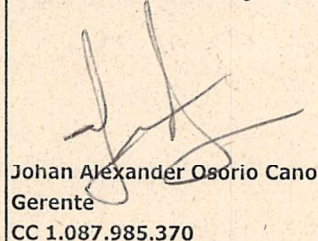 Johan Alexander Osorio Cano
Gerente
CC 1.087.985.370